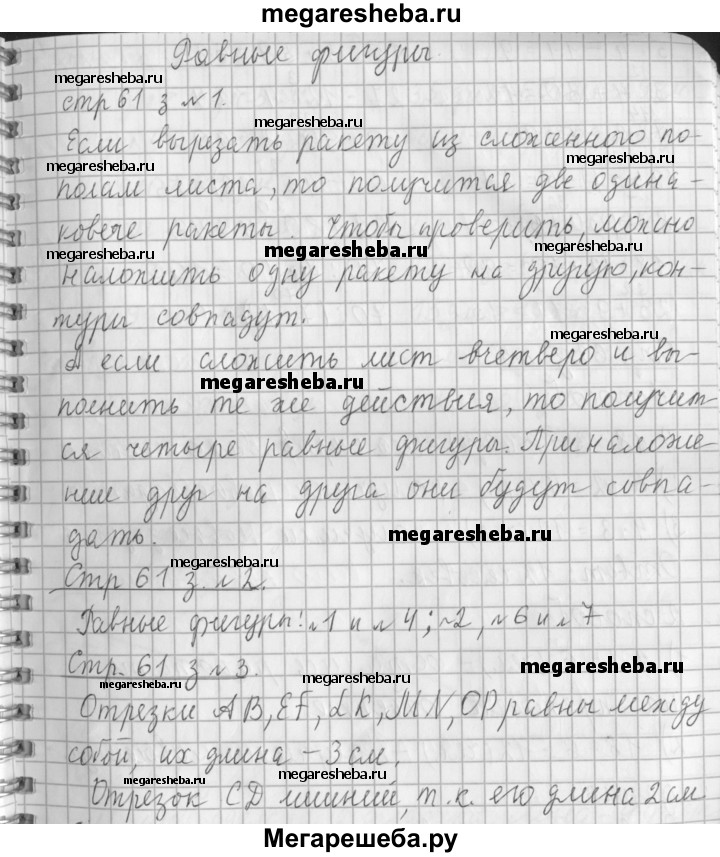 megaresheba.ru
Равные фигуры.
megaresheba.ru
стр 61 з №1.
megaresheba.ru
megaresheba.ru
Если вырезать ракету из сложенного по-
megaresheba.ru
megaresheba.ru
полам листа, то получится две одина-
ковые ракеты. Чтобы проверить, можно
megaresheba.ru
megaresheba.ru
megaresheba.ru
наложить одну ракету на другую, кон-
туры совпадут.
megaresheba.ru
А если сложить лист вчетверо и вы-
megaresheba.ru
полнить те же действия, то получит-
ся четыре равные фигуры. При наложе
нии друг на друга они будут совпа-
дать.
megaresheba.ru
megaresheba.ru
Стр 61 з. №2.
Равные фигуры: №1 и №4; №2, №6 и №7
megaresheba.ru
Стр. 61 з №3.
megaresheba.ru
megaresheba.ru
megaresheba.ru
Отрезки AB, EF, LK, MN, OP равны между
собой, их длина – 3 см.
megaresheba.ru
megaresheba.ru
Отрезок CD лишний, т.к. его длина 2 см
megaresheba.ru
Мегарешеба.ру